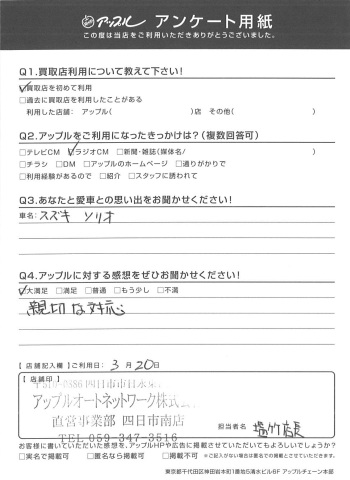 アップル アンケート用紙
この度は当店をご利用いただきありがとうございました。
Q1.買取店利用について教えて下さい!
☑買取店を初めて利用
□過去に買取店を利用したことがある
利用した店舗: アップル( )店 その他( )
Q2.アップルをご利用になったきっかけは?(複数回答可)
□テレビCM ☑ラジオCM □新聞・雑誌(媒体名/ )
□チラシ □DM □アップルのホームページ □通りがかりで
□利用経験があるので □紹介 □スタッフに誘われて
Q3.あなたと愛車との思い出をお聞かせください!
車名: スズキ ソリオ
Q4.アップルに対する感想をぜひお聞かせください!
☑大満足 □満足 □普通 □もう少し □不満
親切な対応
【店舗記入欄】ご利用日: 3月20日
【店舗印】
〒510-0886 四日市市日永東
アップルオートネットワーク株式会
直営事業部 四日市南店
TEL 059-347-3516
担当者名 塩竹店長
お客様に書いていただいた感想を、アップルHPや広告に掲載させていただいてもよろしいでしょうか?
□実名で掲載可 □匿名なら掲載可 □掲載不可 ※記入がございない場合は匿名での掲載とさせていただきます。
東京都千代田区神田岩本町1番地5清水ビル6F アップルチェーン本部